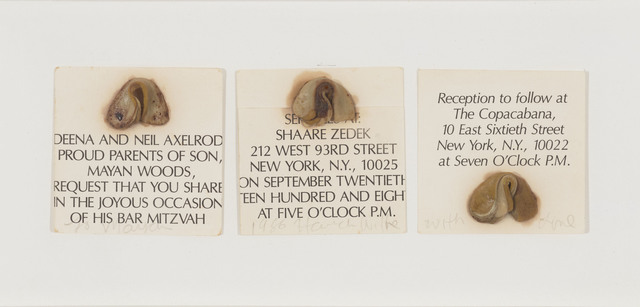 DEENA AND NEIL AXELROD
PROUD PARENTS OF SON,
MAYAN WOODS,
REQUEST THAT YOU SHARE
IN THE JOYOUS OCCASION
OF HIS BAR MITZVAH
SHAARE ZEDEK
212 WEST 93RD STREET
NEW YORK, N.Y., 10025
ON SEPTEMBER TWENTIETH
TEEN HUNDRED AND EIGH
AT FIVE O'CLOCK P.M.
Reception to follow at
The Copacabana,
10 East Sixtieth Street
New York, N.Y., 10022
at Seven O'Clock P.M.
with love